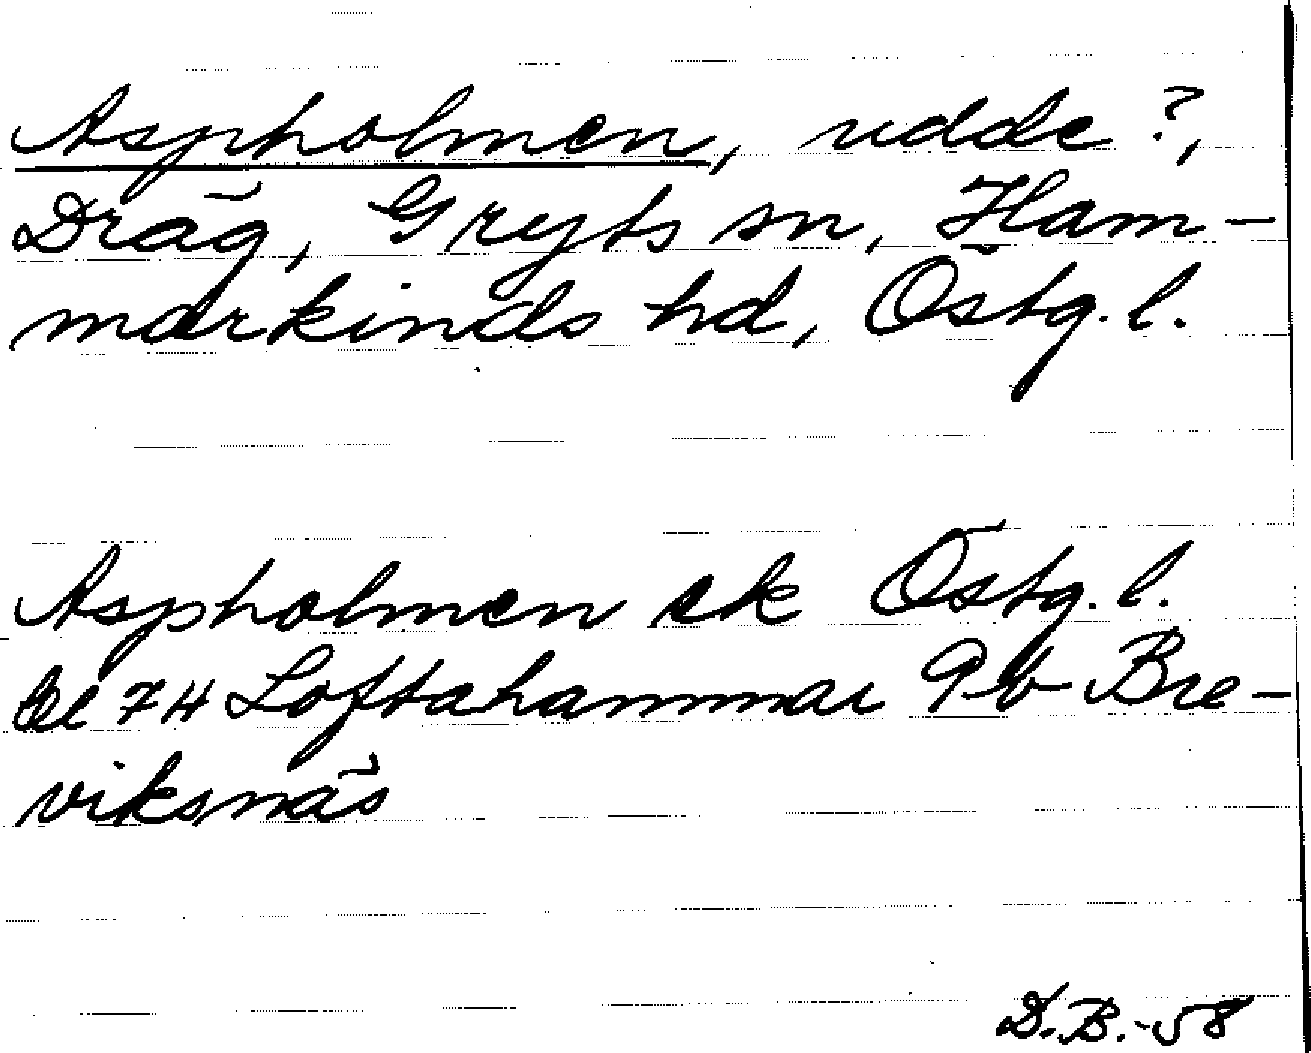 Aspholmen, udde?,
Dräg, Gryts sn, Ham-
markinds hd, Östg. l.
Aspholmen ek Östg. l.
bl 74 Loftahammar 9b Bre-
viksnäs
D.B.-58